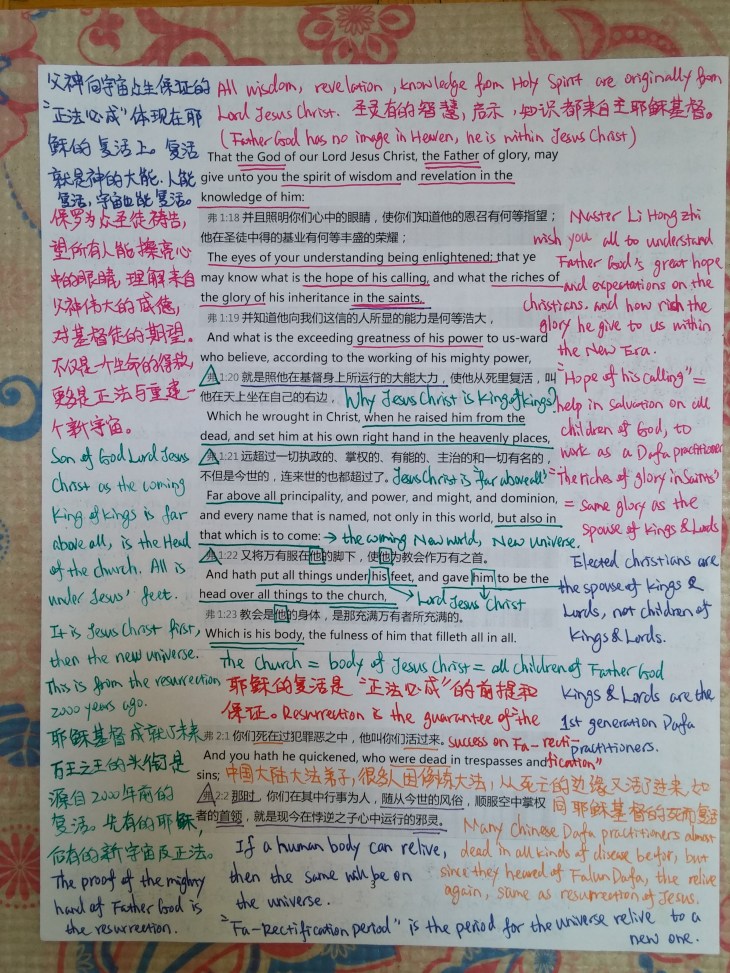 父神向宇宙众生保证的
"正法必成"体现在耶
稣的复活上。复活
就是神的大能。人能
复活,宇宙也能复活。
All wisdom, revelation, knowledge from Holy Spirit are originally from
Lord Jesus Christ. 圣灵有的智慧,启示,知识都来自主耶稣基督。
(Father God has no image in Heaven, he is within Jesus Christ)
That the God of our Lord Jesus Christ, the Father of glory, may
give unto you the spirit of wisdom and revelation in the
knowledge of him:
弗 1:18 并且照明你们心中的眼睛,使你们知道他的恩召有何等指望;
他在圣徒中得的基业有何等丰盛的荣耀;
The eyes of your understanding being enlightened; that ye
may know what is the hope of his calling, and what the riches of
the glory of his inheritance in the saints,
弗 1:19 并知道他向我们这信的人所显的能力是何等浩大,
And what is the exceeding greatness of his power to us-ward
who believe, according to the working of his mighty power,
弗 1:20 就是照他在基督身上所运行的大能大力,使他从死里复活,叫
他在天上坐在自己的右边,
Why Jesus Christ is King of kings?
Which he wrought in Christ, when he raised him from the
dead, and set him at his own right hand in the heavenly places,
弗 1:21 远超过一切执政的、掌权的、有能的、主治的和一切有名的,
不但是今世的,连来世的也都超过了。
Jesus Christ is "far above all"
Far above all principality, and power, and might, and dominion,
and every name that is named, not only in this world, but also in
that which is to come:
→ the coming New world, New universe.
弗 1:22 又将万有服在他的脚下,使他为教会作万有之首。
And hath put all things under his feet, and gave him to be the
head over all things to the church,
→ Lord Jesus Christ
弗 1:23 教会是他的身体,是那充满万有者所充满的。
Which is his body, the fulness of him that filleth all in all.
The church = body of Jesus christ = all children of Father God
耶稣的复活是"正法必成"的前提和
保证。Resurrection is the guarantee of "the
success on Fa-recti-
fication"
弗 2:1 你们死在过犯罪恶之中,他叫你们活过来。
And you hath he quickened, who were dead in trespasses and
sins;
中国大陆大法弟子,很多人因修炼大法,从死亡的边缘又活了过来,如
同耶稣基督的死而复活
弗 2:2 那时,你们在其中行事为人,随从今世的风俗,顺服空中掌权
者的首领,就是现在悖逆之子心中运行的邪灵。
Many chinese Dafa practitioners almost
dead in all kinds of disease befor, but
since they heared of Falun Dafa, the relive
again, same as resurrection of Jesus.
If a human body can relive,
then the same will be on
the universe.
"Fa-Rectification period" is the period for the universe relive to a
new one.
保罗为众圣徒祷告,
望所有人能擦亮心
中的眼睛,理解来自
父神伟大的威德,
对基督徒的期望。
不仅是一个生命的得救,
更是正法与重建一
个新宇宙。
Son of God Lord Jesus
Christ as the coming
King of kings is far
above all, is the Head
of the church. All is
under Jesus' feet.
It is Jesus Christ first,
then the new universe.
This is from the resurrection
2000 years ago.
耶稣基督成就了未来
万王之王的头衔是
源自2000年前的
复活。先有的耶稣,
后有的新宇宙及正法。
The proof of the mighty
hand of Father God is
the resurrection.
Master Li Hongzhi
wish you all to understand
Father God's great hope
and expectations on the
christians. and how rich the
glory he give to us within
the New Era.
"Hope of his calling" =
help in salvation on all
children of God, to
work as a Dafa practitioner
"The riches of glory in Saints"
= same glory as the
spouse of Kings & Lords
Elected christians are
the spouse of kings &
Lords, not children of
Kings & Lords.
Kings & Lords are the
1st generation Dafa
practitioners.